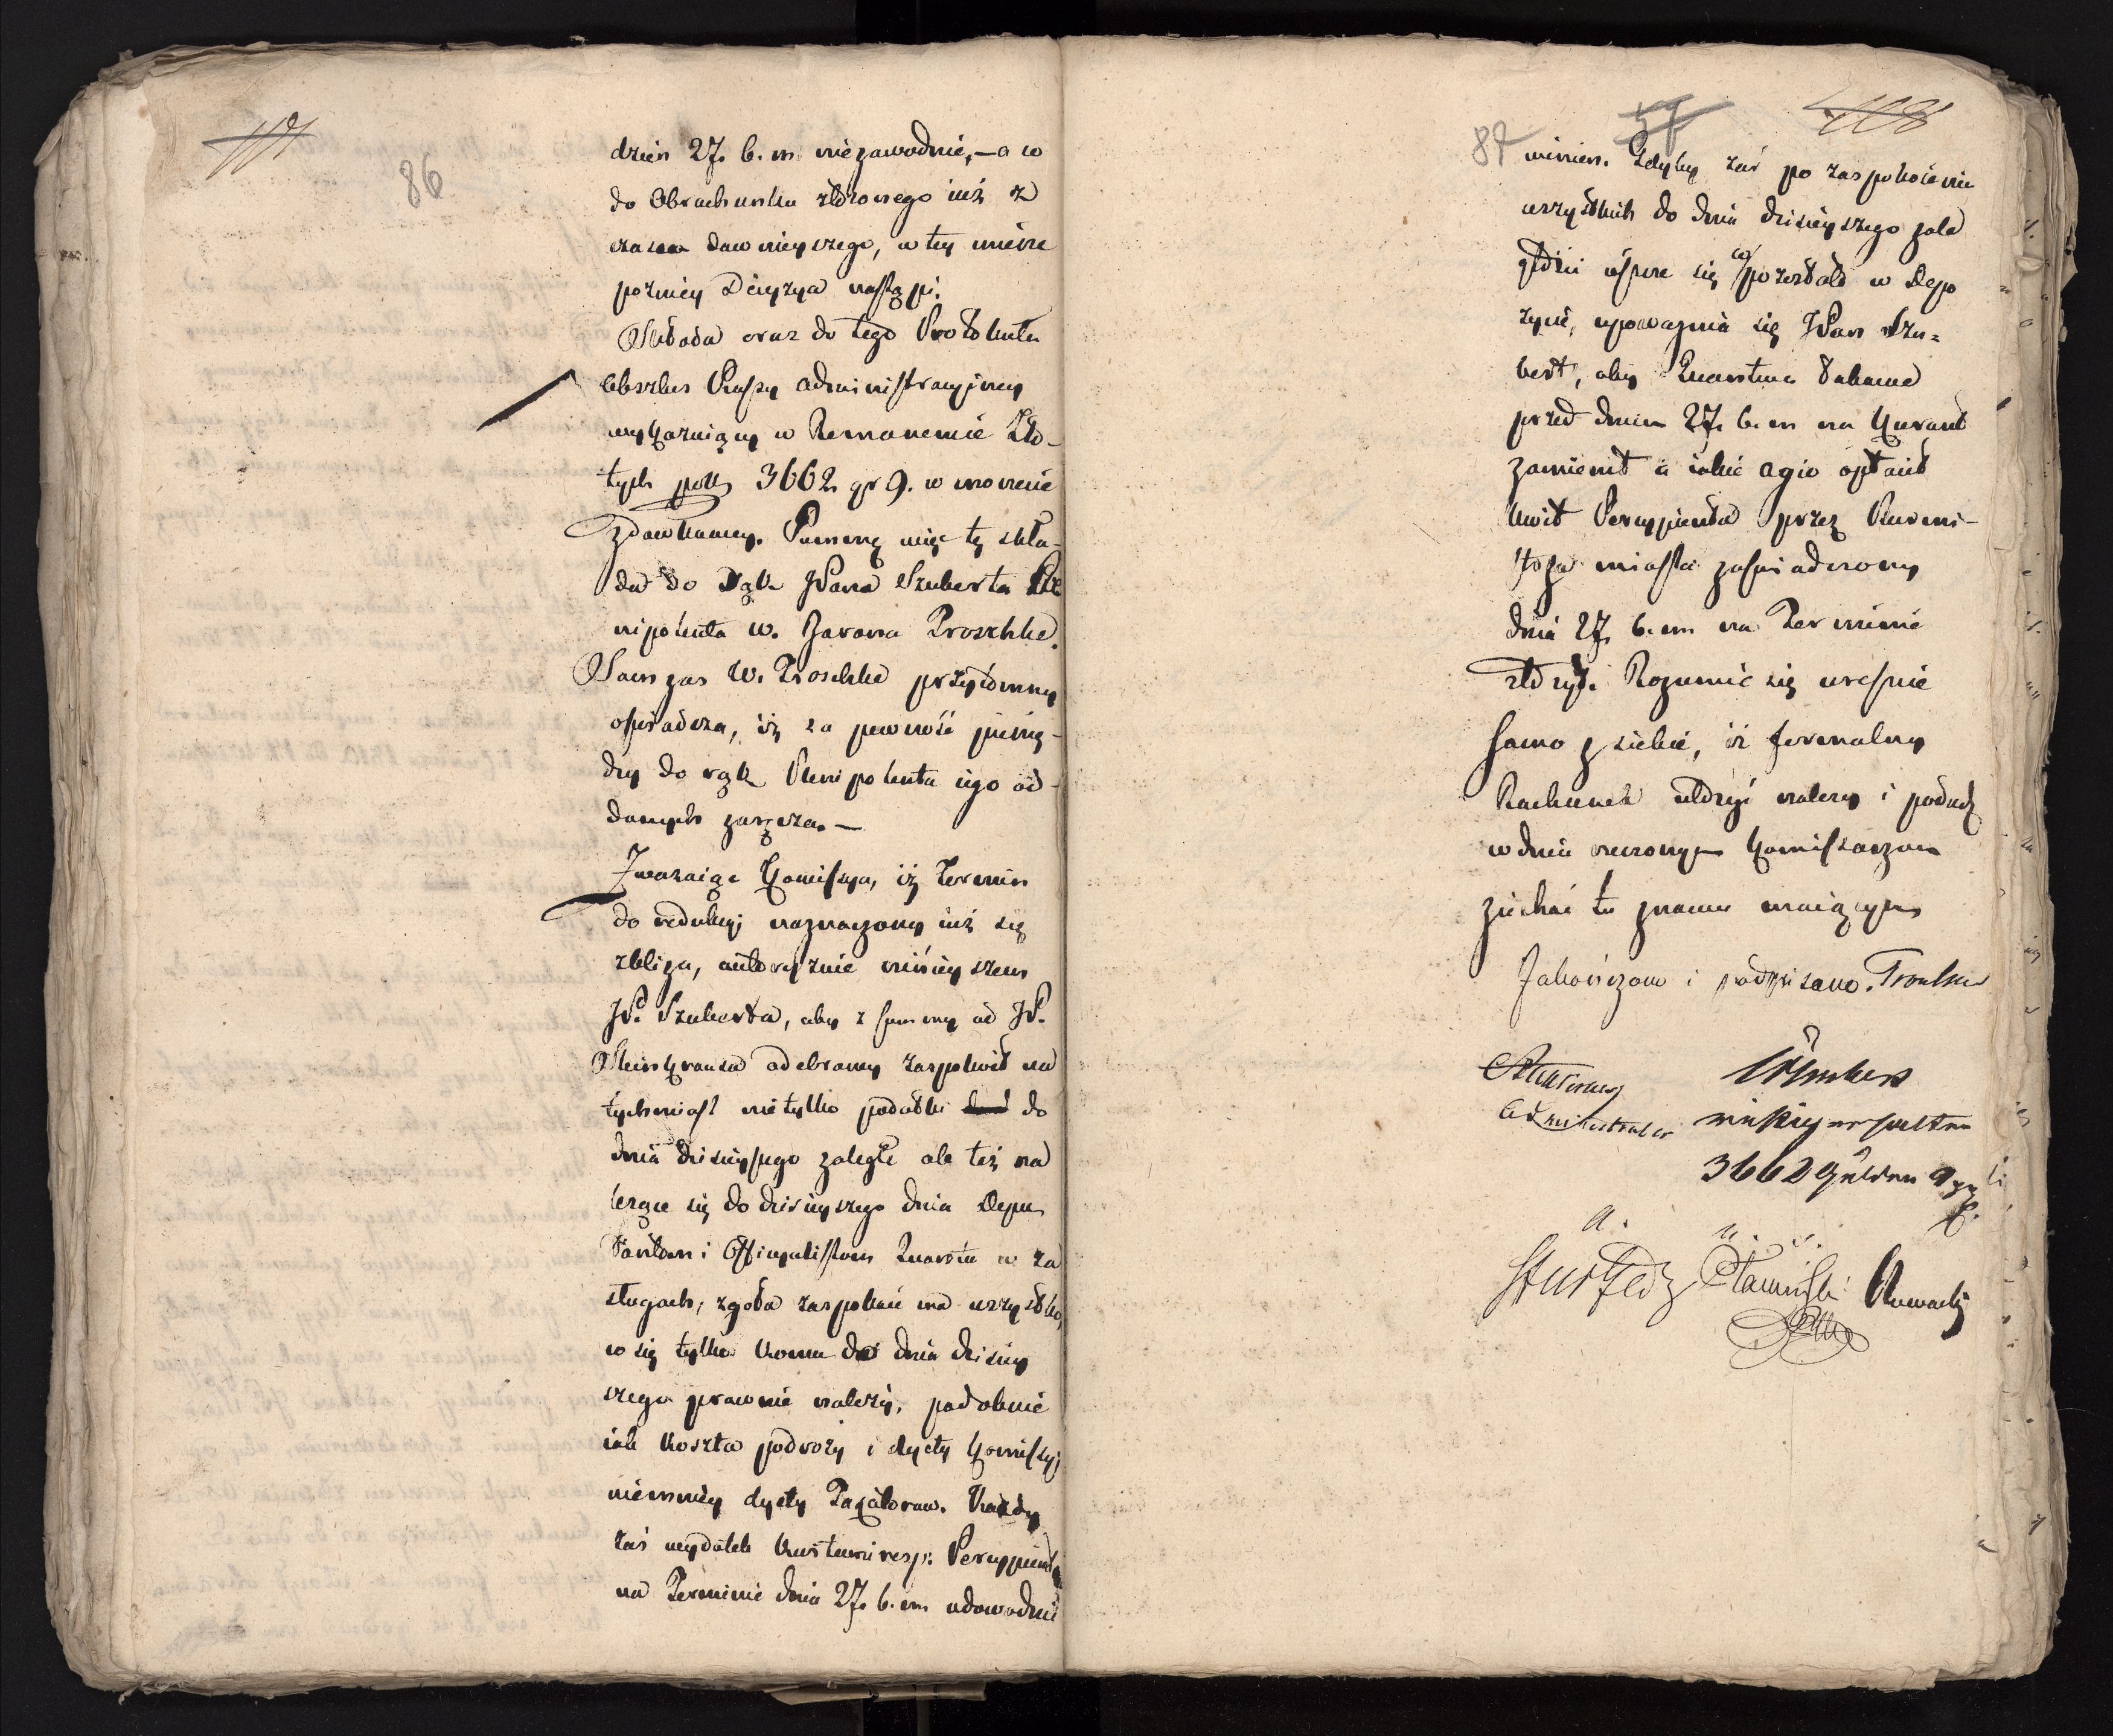 86
dzień 27. b. m. niezawodnie, — a co
do Obrachunku złożonego iuż z
czasu dawnieyszego, w tey mierze
pozniey Decyzya nastąpi.
Składa oraz do tego Protokułu
Abszlus Kassy administracyiney
wykazuiący w Remanencie Zło-
tych polls 3662 gr 9. w monecie
zdawkowey. Summę więc tę skła-
da do Rąk JPana Szuberta Ple
nipotenta W. Barona Troschke.
Sam zas W. Troschke przytomny
oświadcza, iż za pewność pienię-
dzy do rąk Plenipotenta iego od-
danych zaręcza. —
Zwazaiąc Komissya, iż Termin
do redukcyi naznaczony iuż się
zbliza, autoryzuie ninieyszem
JP. Szuberta, aby z summy od JP.
odebraney zaspokoił na
tychmiast nietylko podatki do
dnia dzisieyszego zaległe ale też na
lezące się do dzisieyszego dnia Depu
tantom i Officyalistom Kwarta w za
sługach, zgoła zaspokoić ma wszystko,
co się tylko komu do dnia dzisiey
szego prawnie należy, podobnie
iak koszta podrozy i dyety Komissyi
niemniey dyety Taxatorow. Każdy
zaś wydatek kwitami resp: Percypienta
na Terminie dnia 27. b. m. udowodnić
87 57 108
winien. Gdyby zaś po zaspokoieniu
wszystkich do dnia dzisieyszego zale
głości ieszcze się co pozostało w Depo
zycie, upoważnia się JPan Szu-
bert, aby Kwantum takowe
przed dniem 27. b. m na Kurant
zamienił a iakie agio opłacił
kwit Percypienta przez Burmi-
strza miasta zaświadczony
dnia 27. b. m na Terminie
złożył. Rozumie się wreszcie
samo z siebie, iż formalny
Rachunek ułożyć należy i podać
w dniu rzeczonym Komissarzom
ziechać tu znowu maiącym
Zakończono i podpisano. Troschke
Administrator
3662 Gulden 9 gr
a. u. s.
Nowacki